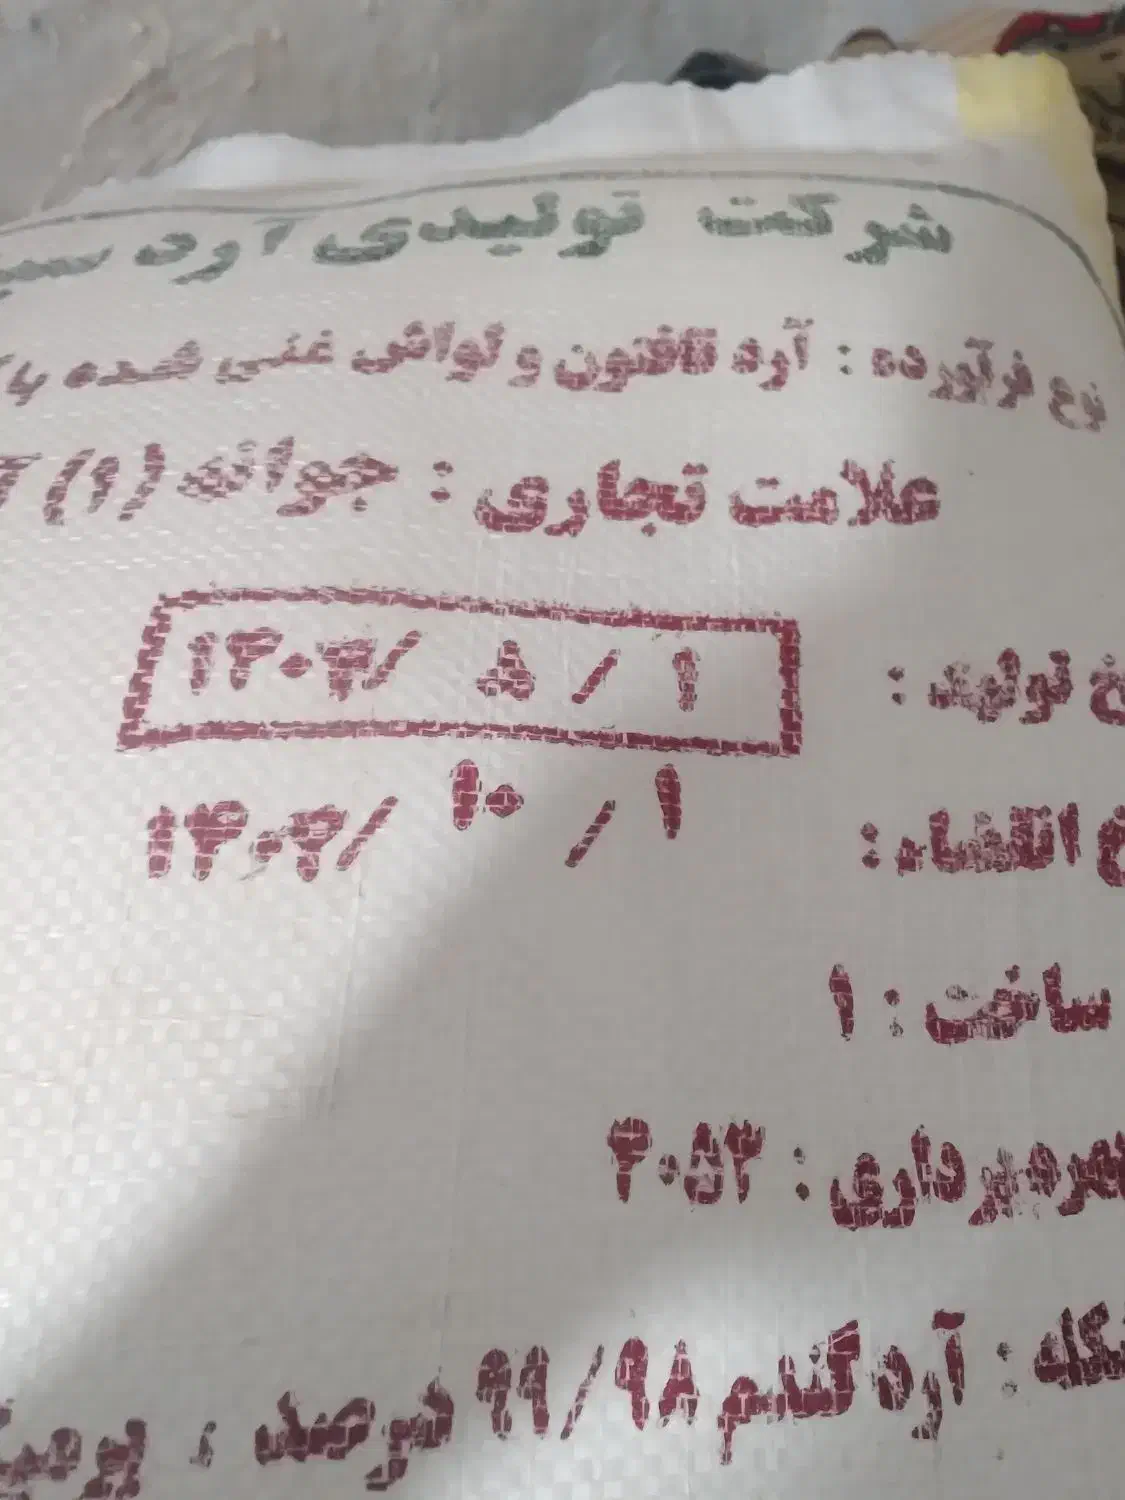 شرکت تولیدی آرد
نوع فرآورده : آرد تافتون و لواش غنی شده با
علامت تجاری : جوانه (۱)
تولید : ۱ / ۵ /
انقضاء : ۱ / ۱۰ /
ساخت : ۱
بهره برداری : ۲۰۵۳
آرد گندم ۹۹/۹۸ درصد ،